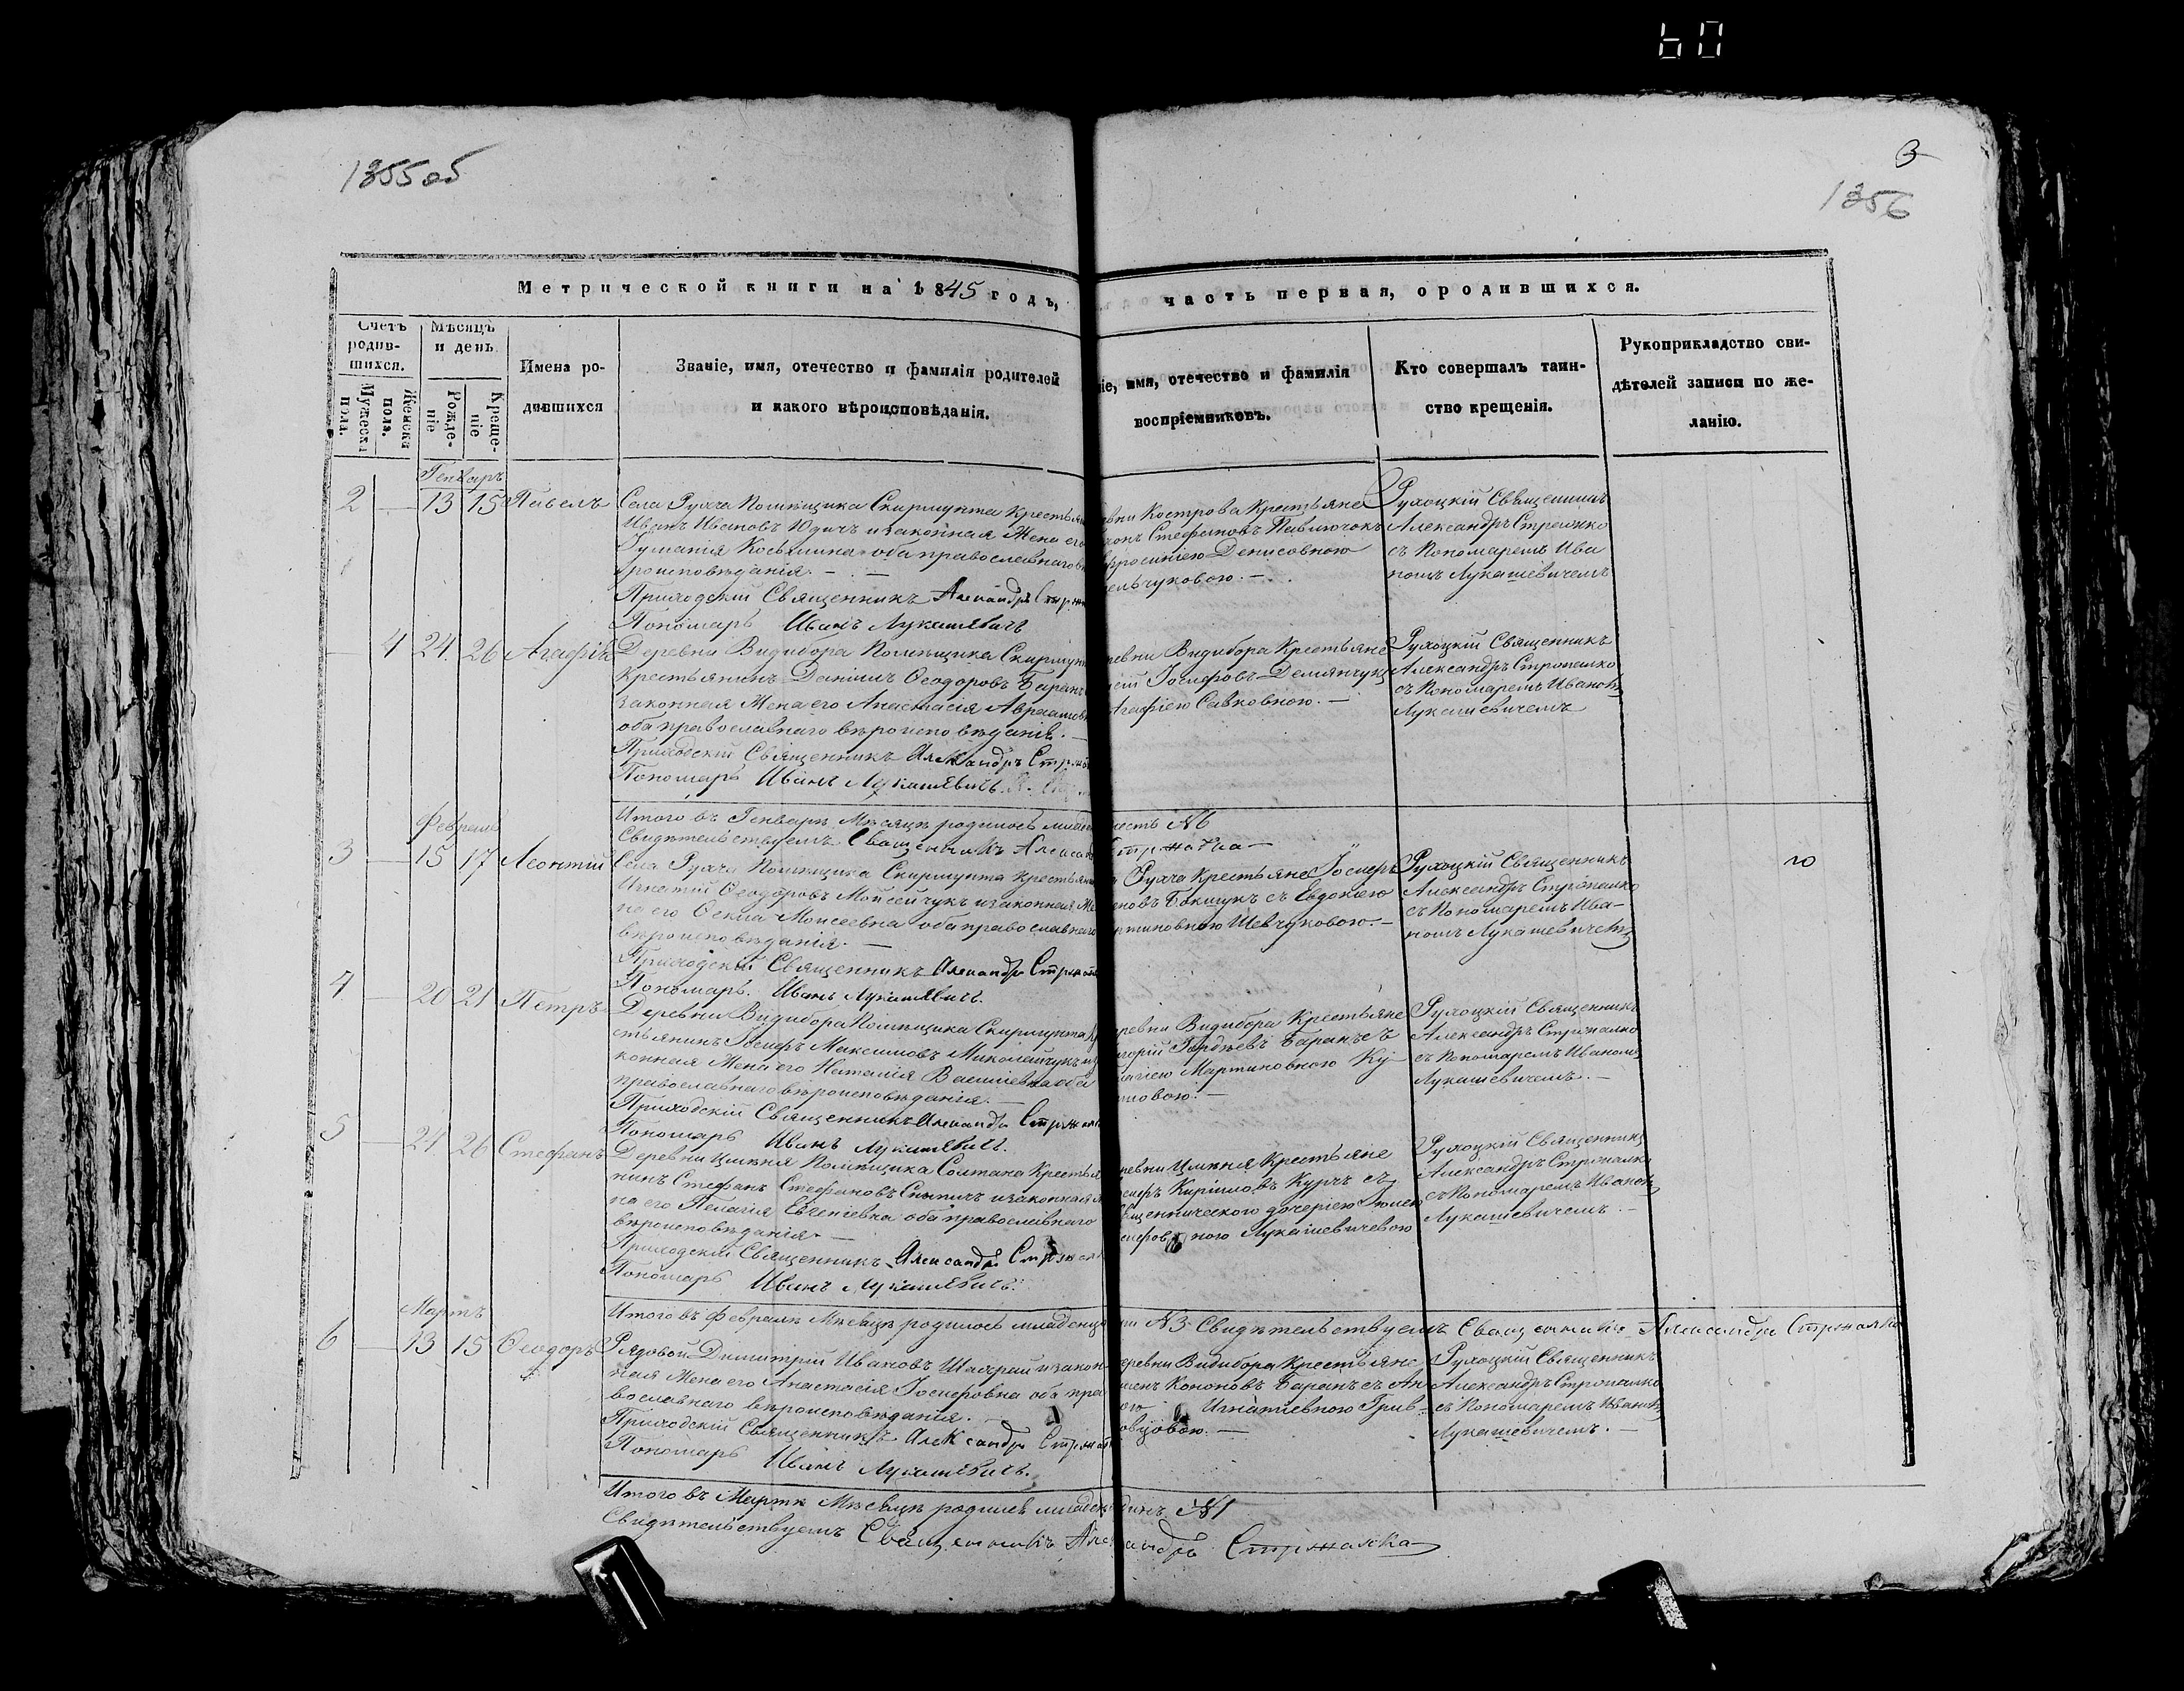 60
1355 об
3
1356
Метрической книги на 1845 годъ, часть первая, о родившихся.
Счетъ родив-шихся.
Мужеска пола.
Женска пола.
Мѣсяцъ и день
Рожде-ніе
Креще-ніе
Имена ро-
дившихся
Званіе, имя, отечество и фамилія родителей
и какого вѣроисповѣданія.
іе, имя, отечество и фамилія
воспріемниковъ.
Кто совершалъ таин-
ство крещенія.
Рукоприкладство сви-
дѣтелей записи по же-
ланію.
Генварь
2 — 13 15 Павелъ
Села Рухча Помѣщика Скирмунта Крестьян
Иванъ Ивановъ Юдичъ и законная Жена его
Косьмина оба православнаго в
роисповѣданія. —
Приходскій Священникъ Александръ
Пономарь Иванъ Лукашевичъ
вни Кострова Крестьяне
Стефановъ Павлючокъ
Денисовною
ельчуковою. —
Рухоцкій Священникъ
Александръ Стрепалко
съ Пономаремъ Ива
номъ Лукашевичемъ
— 4 24 26 Агафія
Деревни Видибора Помѣщика Скирмун
Крестьянинъ Даніилъ Ѳеодоровъ Баранъ
законная Жена его Анастасія
оба православнаго вѣроисповѣданія. —
Приходскій Священникъ Александръ
Пономарь Иванъ Лукашевичъ.
ревни Видибора Крестьяне
Іосифовъ Демянчукъ
Агафіею Савковною. —
Рухоцкій Священникъ
Александръ Стропалко
съ Пономаремъ Иваномъ
Лукашевичемъ
Итого въ Генварѣ Мѣсяцѣ родилось младен
шесть №6
Свидѣтельствуемъ Священникъ
Февраль
3 — 15 17 Леонтій
Села Рухча Помѣщика Скирмунта Крестьян
Игнатій Ѳеодоровъ Мойсейчукъ и законная Же
на его Моисеевна оба православнаго
вѣроисповѣданія. —
Приходскій Священникъ Александръ
Пономарь. Иванъ Лукашевичъ.
а Рухча Крестьяне Іосифъ
новъ Бокшукъ съ Евдокіею
ртиновною Шевчуковою. —
Рухоцкій Священникъ
Александръ Стропалко
съ Пономаремъ Ива-
номъ Лукашевичемъ
4 — 20 21 Петръ
Деревни Видибора Помѣщика Скирмунта Кре
стьянинъ Іосифъ Максимовъ Миколайчукъ и з
конная Жена его Наталія Василіевна оба
православнаго вѣроисповѣданія. —
Приходскій Священникъ Александръ
Пономарь Иванъ Лукашевичъ.
ревни Видибора Крестьяне
игорій Гордѣевъ Баранъ съ
Мартиновною
новою. —
Рухоцкій Священникъ
Александръ Стропалко
съ Пономаремъ Иваномъ
Лукашевичемъ. —
5 — 24 26 Стефанъ
Деревни Помѣщика Солтана Крестья
нинъ Стефанъ Стефановъ и законная
на его Пелагія Евгеніевна оба православнаго
вѣроисповѣданія. —
Приходскій Священникъ Александръ
Пономарь Иванъ Лукашевичъ.
ревни Крестьяне
осифъ Кириловъ Курчъ съ
вященническою дочерью
сифовною Лукашевичевою
Рухоцкій Священникъ
Александръ Стропалко
съ Пономаремъ Иваномъ
Лукашевичемъ. —
Итого въ Февралѣ Мѣсяцѣ родилось младенц
№3. Свидѣтельствуемъ Священникъ Александръ
Мартъ
6 — 13 15 Ѳеодоръ
Рядовой Димитрій Ивановъ и закон
ная Жена его Анастасія Іосифовна оба пра
вославнаго вѣроисповѣданія. —
Приходскій Священникъ Александръ
Пономарь Иванъ Лукашевичъ.
еревни Видибора Крестьяне
Кононовъ Баранъ съ Ан
ою Игнатіевною
Рухоцкій Священникъ
Александръ Стропалко
съ Пономаремъ Иваномъ
Лукашевичемъ. —
Итого въ Мартѣ Мѣсяцѣ родился младен
динъ №1
Свидѣтельствуемъ Священникъ Александръ